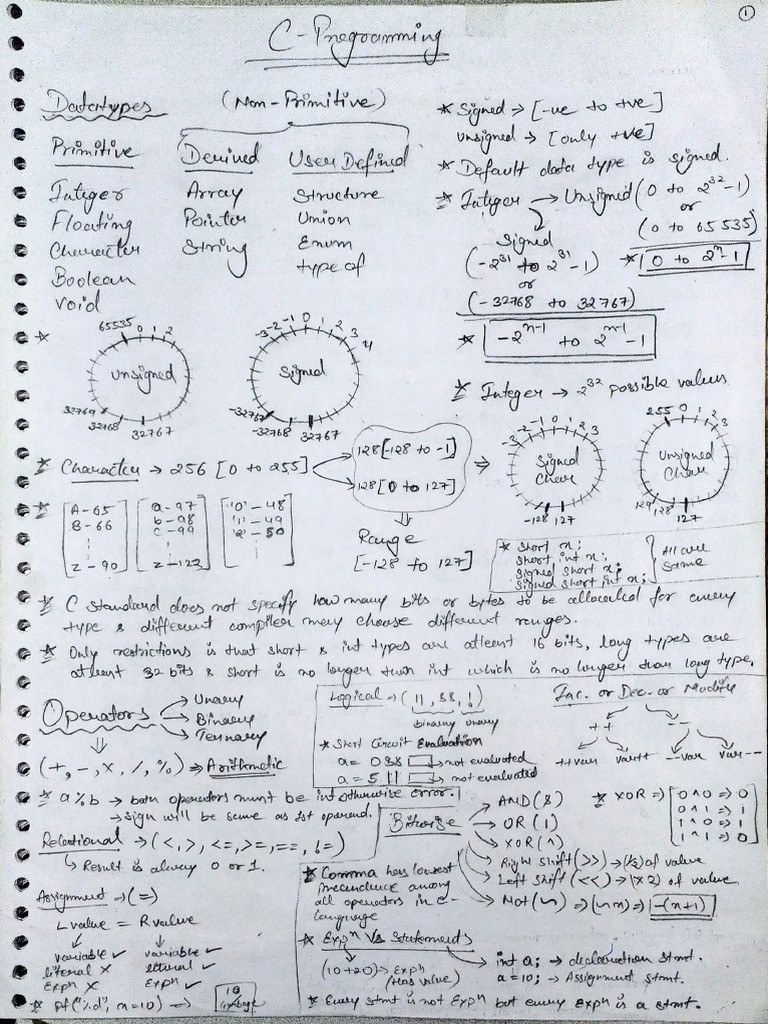 1
C-Programming
Datatypes (Non-Primitive)
Primitive Derived User Defined
Integer Array Structure
Floating Pointer Union
Character String Enum
Boolean type of
void
* Signed → [-ve to +ve]
unsigned → [only +ve]
* Default data type is signed.
* Integer → Unsigned (0 to 2^32-1)
or
(0 to 65535)
* 0 to 2^n-1
Signed
(-2^31 to 2^31-1)
or
(-32768 to 32767)
* -2^n-1 to 2^n-1 -1
* unsigned 65535 0 1 2 32769 32768 32767
Signed -3 -2 -1 0 1 2 3 4 -32767 -32768 32767
* Integer → 2^32 possible values
* Character → 256 [0 to 255]
128[-128 to -1]
128[0 to 127]
⇒ Signed Char -3 -2 -1 0 1 2 3 -128 127
Unsigned Char 255 0 1 2 3 129 128 127
⇓
Range
[-128 to 127]
* A-65 a-97 '0'-48
B-66 b-98 '1'-49
c-99 '2'-50
Z-90 z-122
* short x;
short int x;
signed short x;
signed short int x;
All are same
* C standard does not specify how many bits or bytes to be allocated for every
type & different compiler may choose different ranges.
* Only restrictions is that short & int types are atleast 16 bits, long types are
atleast 32 bits & short is no longer than int which is no longer than long type.
Operators → Unary
→ Binary
→ Ternary
⇓
(+, -, ×, /, %) ⇒ Arithmetic
* a%b → both operators must be int otherwise error.
→ sign will be same as 1st operand.
Relational → (<, >, <=, >=, ==, !=)
↳ Result is always 0 or 1.
Assignment → (=)
Lvalue = Rvalue
variable ✓ variable ✓
literal × literal ✓
expn × expn ✓
* pf("%d", x=10) → 10
Logical → (||, &&, !)
binary unary
* Short Circuit Evaluation
a = 0&& → not evaluated
a = 5|| → not evaluated
Inc. or Dec. or Modify
++ --
++var var++ --var var--
Bitwise → AND(&)
→ OR(|)
→ XOR(^)
→ Right shift(>>) → (1/2) of value
→ Left shift(<<) → (×2) of value
→ Not(~) ⇒ (~x) = -(x+1)
* XOR ⇒ 0^0 ⇒ 0
0^1 ⇒ 1
1^0 ⇒ 1
1^1 ⇒ 0
* Comma has lowest
precendence among
all operators in C-
language
* Expn Vs Statements → int a; → declaration stmt.
(10+20) → Expn a=10; → Assignment stmt.
(Has value)
* Every stmt is not Expn but every expn is a stmt.